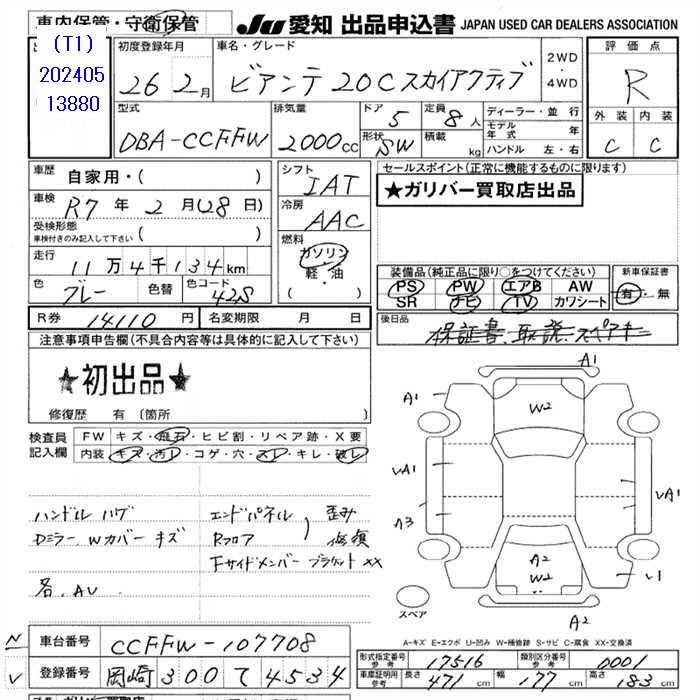 車内保管・守衛保管
JU 愛知 出品申込書 JAPAN USED CAR DEALERS ASSOCIATION
(T1)
202405
13880
初度登録年月
26 2月
車名・グレード
ビアンテ 20C スカイアクティブ
2WD
・
4WD
評価点
R
外装 内装
C C
型式
DBA-CCFFW
排気量
2000cc
ドア
5
形状
SW
定員
8人
積載
kg
ディーラー・並行
モデル年式 年
ハンドル 左・右
車歴
自家用・( )
車検
R7年2月(28日)
受検形態
車検付きのみ記入して下さい ( )
走行
11万4千134km
色
グレー
色替
色コード
42S
シフト
IAT
冷房
AAC
燃料
ガソリン
・軽・油
( )
セールスポイント(正常に機能するものに限ります)
★ガリバー買取店出品
装備品(純正品に限り○をつけてください)
PS PW エアB AW
SR ナビ TV カワシート
新車保証書
有・無
R券 14110円
名変期限 月 日
後日品
保証書、取説、スペアキー
注意事項申告欄(不具合内容等は具体的に記入して下さい)
★初出品★
修復歴 有 (箇所
検査員
記入欄
FW キズ・飛石・ヒビ割・リペア跡・X要
内装 キズ・汚レ・コゲ・穴・スレ・キレ・破レ
ハンドル ハゲ
Dミラー、Wカバー キズ
各、AU
エンドパネル
Rフロア
) 歪み
修復
Fサイドメンバー ブラケット XX
A1
A1
W2
VA1
VA1
A3
A2
W2
A2
スペア
A-キズ E-エクボ U-凹み W-補修跡 S-サビ C-腐食 XX-交換済
車台番号
CCFFW-107708
登録番号
岡崎 300 て 4534
形式指定番号
参考
17516
類別区分番号
参考
0001
車庫証明用
参考
長さ 471cm
幅 177cm
高さ 183cm